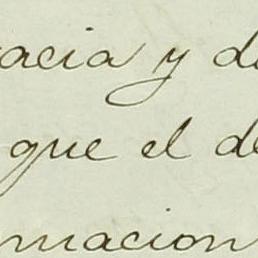 acia y d
que el de
macion